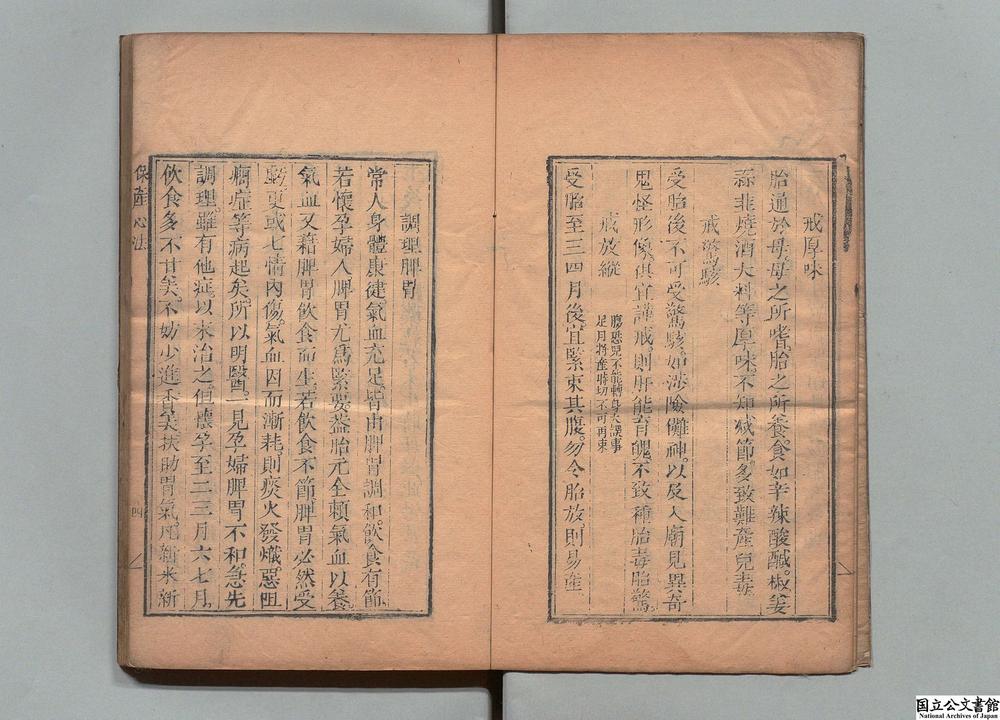 戒厚味
胎通於母。母之所嗜。胎之所養。食如辛辣酸醎。椒姜
蒜韭燒酒大料等厚味。不知减節。多致難產兒毒。
戒驚駭
受胎後不可受驚駭。如涉險儺神。以及入廟見異奇
鬼怪形像。俱宜謹戒。則肝能育魄。不致種胎毒胎驚。
戒放縱
受胎至三四月後。宜緊束其腹。勿令胎放則易產
足月將產時切不可再束
腸恐兒不能轉身大誤事
調理脾胃
常人身體康健。氣血充足。皆由脾胃調和。飲食有節。
若懷孕婦人脾胃尤爲緊要。葢胎元全賴氣血以養。
氣血又藉脾胃飲食而生。若飲食不節。脾胃必然受
虧。更或七情內傷。氣血因而漸耗。則痰火發熾。惡阻
癇症等病起矣。所以明醫一見孕婦脾胃不和。急先
調理。雖有他症。以末治之。但懷孕至二三月六七月。
飲食多不甘美。不妨少進香美扶助胃氣。凡新米新
保產心法
四
国立公文書館
National Archives of Japan